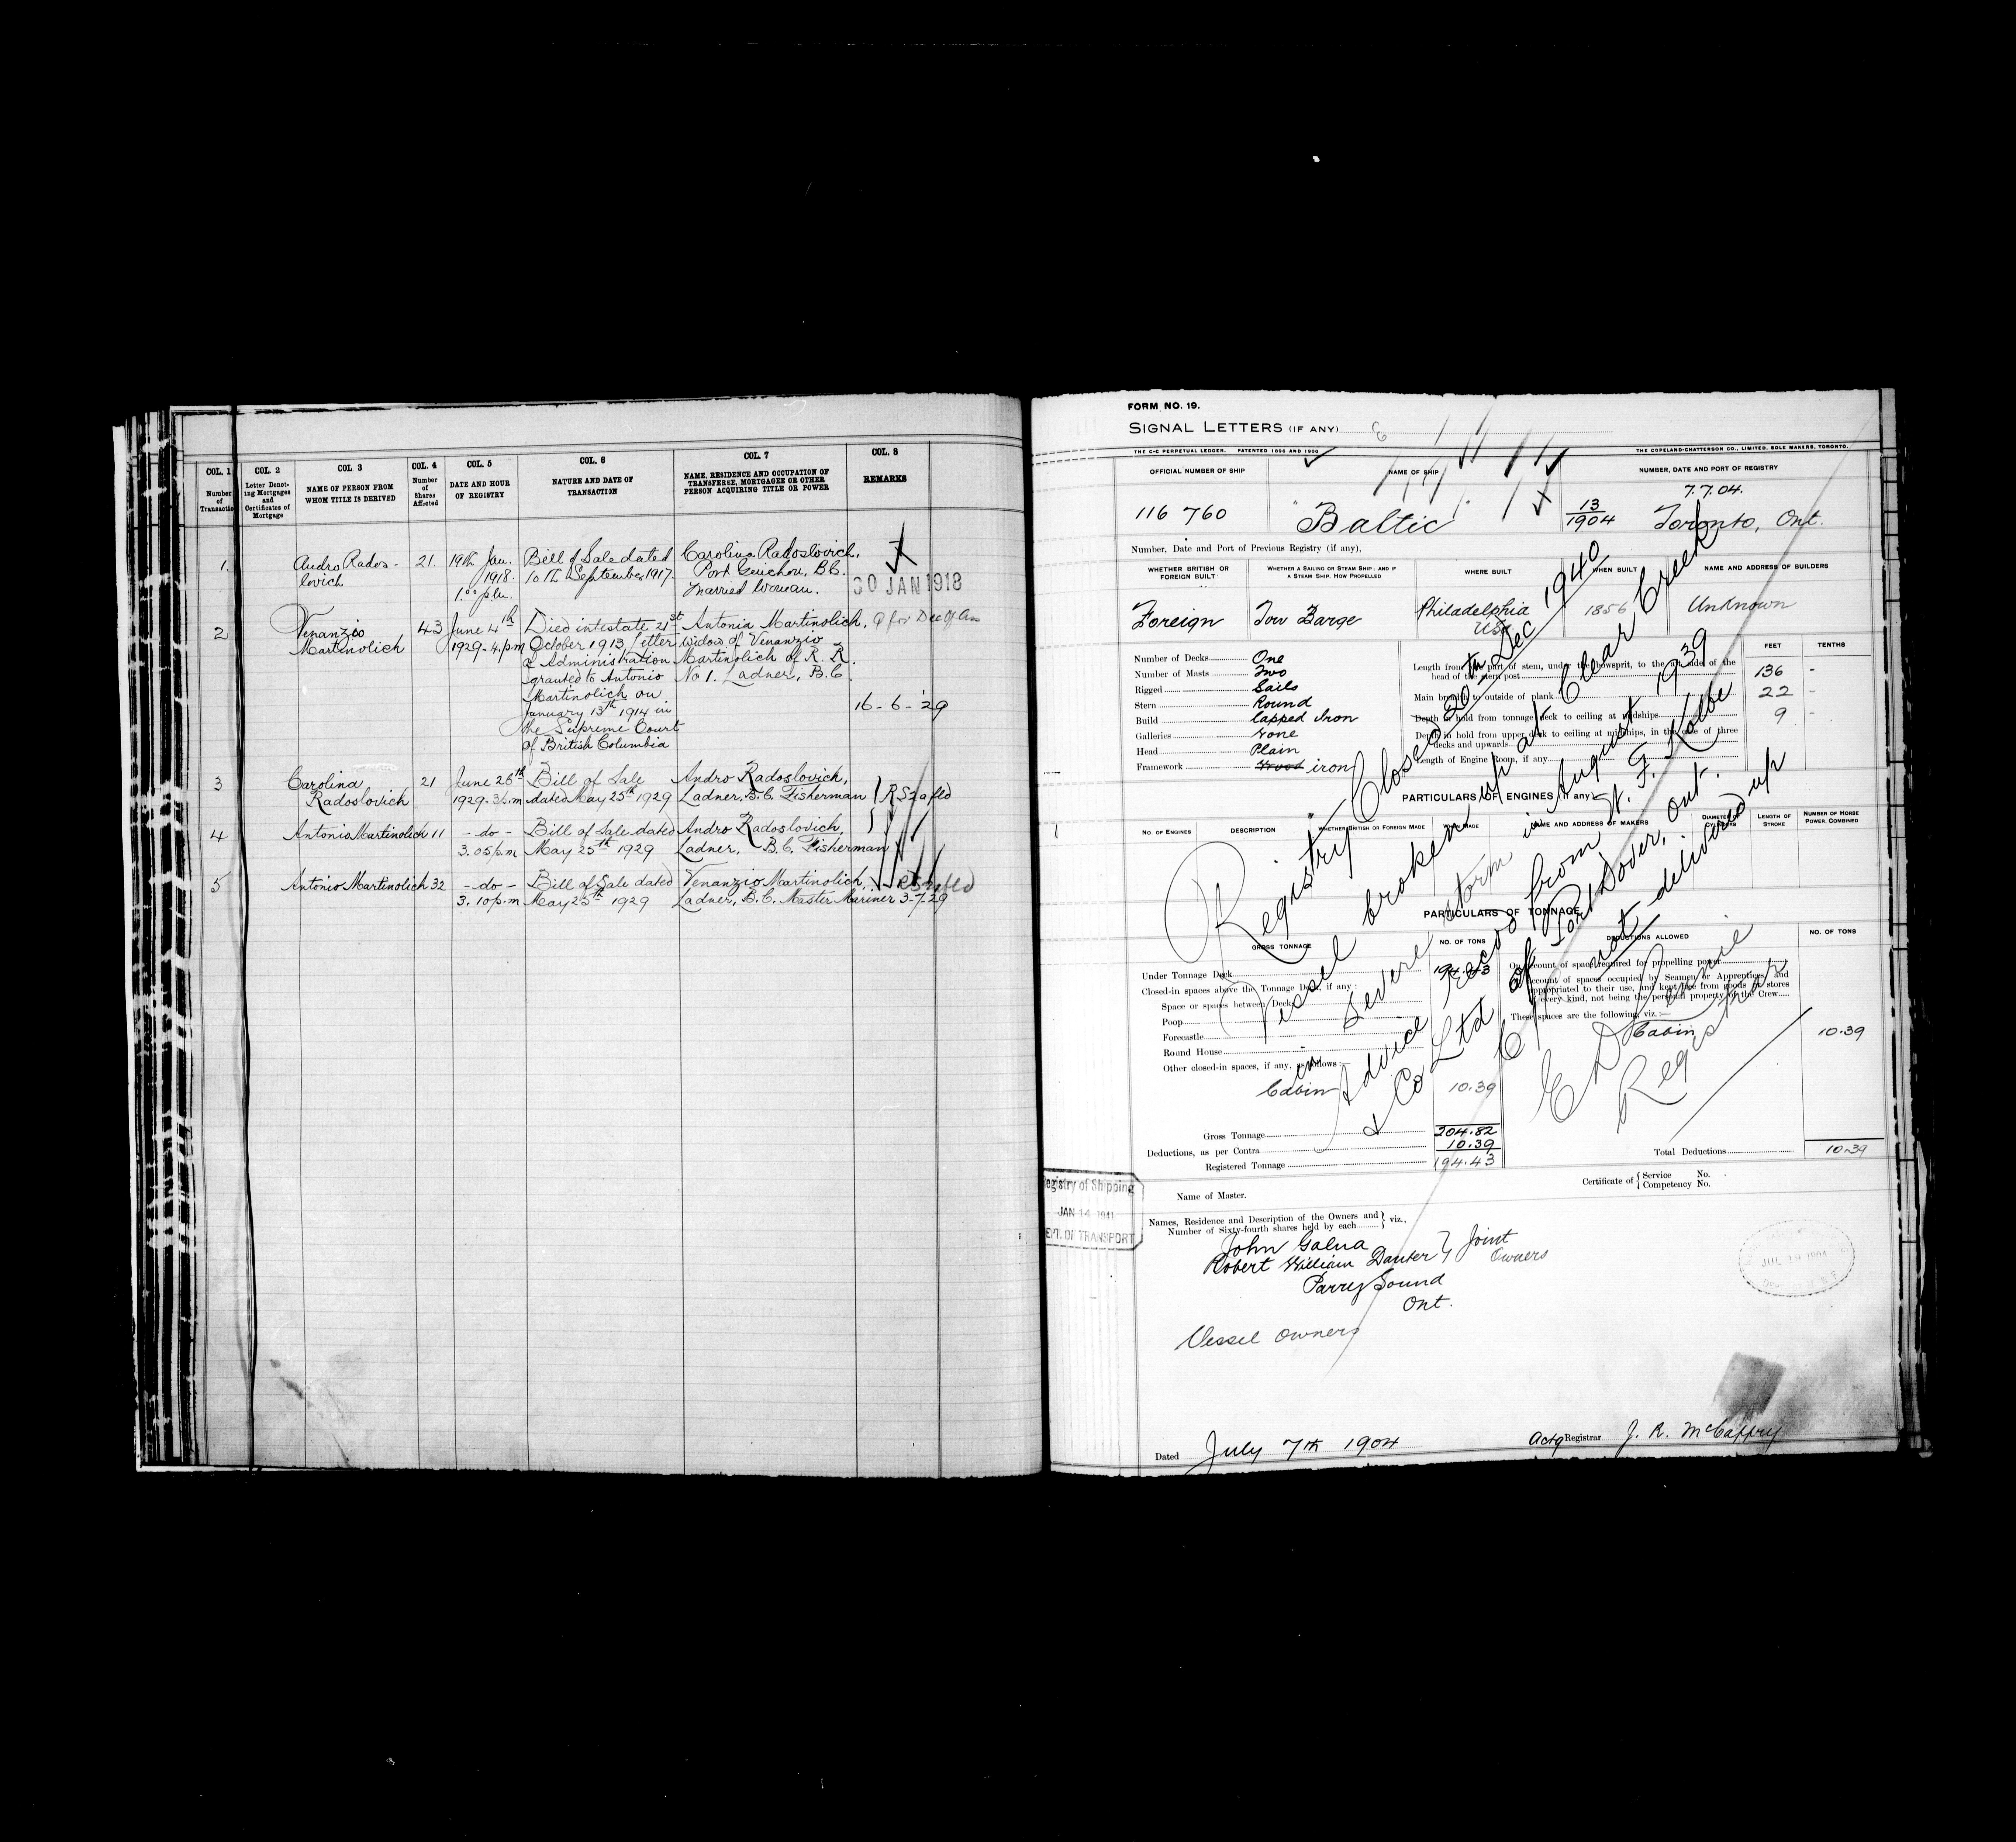 COL. 1
Number of Transaction
COL. 2
Letter Denoting Mortgages and Certificates of Mortgage
COL. 3
NAME OF PERSON FROM WHOM TITLE IS DERIVED
COL. 4
Number of Shares Affected
COL. 5
DATE AND HOUR OF REGISTRY
COL. 6
NATURE AND DATE OF TRANSACTION
COL. 7
NAME, RESIDENCE AND OCCUPATION OF TRANSFERE, MORTGAGEE OR OTHER PERSON ACQUIRING TITLE OR POWER
COL. 8
REMARKS
1. Andro Rados- 21. 19th Jan. Bill of Sale dated Carolina Radoslovich,
lovich. 1918. 10th September 1917. Port Guichon, B.C.
1.00 p.m. Married Woman. 30 JAN 1918
2 Venanzio 43 June 4th Died intestate 21st Antonia Martinolich,
Martinolich 1929-4.p.m October 1913 letter widow of Venanzio
of Administration Martinolich of R. R.
granted to Antonio No 1. Ladner, B.C.
Martinolich on
January 13th 1914 in 16-6-29
the Supreme Court
of British Columbia
3 Carolina 21 June 26th Bill of Sale Andro Radoslovich,
Radoslovich 1929. 3p.m dated May 25th 1929 Ladner, B.C. Fisherman
4 Antonio Martinolich 11 -do- Bill of Sale dated Andro Radoslovich,
3.05p.m May 25th 1929 Ladner, B.C. Fisherman
5 Antonio Martinolich 32 -do- Bill of Sale dated Venanzio Martinolich,
3.10p.m May 25th 1929 Ladner, B.C. Master Mariner 3-7-29
FORM NO. 19.
SIGNAL LETTERS (IF ANY)
THE C-C PERPETUAL LEDGER. PATENTED 1896 AND 1900 THE COPELAND-CHATTERSON CO., LIMITED, SOLE MAKERS, TORONTO.
OFFICIAL NUMBER OF SHIP NAME OF SHIP NUMBER, DATE AND PORT OF REGISTRY
7.7.04.
116 760 Baltic 13/1904 Toronto, Ont.
Number, Date and Port of Previous Registry (if any),
WHETHER BRITISH OR FOREIGN BUILT
WHETHER A SAILING OR STEAM SHIP; AND IF A STEAM SHIP, HOW PROPELLED
WHERE BUILT
WHEN BUILT
NAME AND ADDRESS OF BUILDERS
Foreign Tow Barge Philadelphia USA 1856 Unknown
FEET TENTHS
Number of Decks One
Number of Masts Two
Rigged Sails
Stern Round
Build Lapped Iron
Galleries None
Head Plain
Framework Wood iron
Length from fore part of stem, under the bowsprit, to the aft side of the head of the stern post 136 -
Main breadth to outside of plank 22 -
Depth in hold from tonnage deck to ceiling at midships 9 -
Depth in hold from upper deck to ceiling at midships, in the case of three decks and upwards
Length of Engine Room, if any
PARTICULARS OF ENGINES (if any)
NO. OF ENGINES DESCRIPTION WHETHER BRITISH OR FOREIGN MADE WHEN MADE NAME AND ADDRESS OF MAKERS DIAMETER CYLINDERS LENGTH OF STROKE NUMBER OF HORSE POWER, COMBINED
Registry Closed 20th Dec 1940
Vessel broken up at Clear Creek
in severe storm in August 1939
Advice Recvd from W. F. Kolbe
& Co Ltd of Port Dover, Ont.
C/R not delivered up
Registrar
PARTICULARS OF TONNAGE
GROSS TONNAGE NO. OF TONS DEDUCTIONS ALLOWED NO. OF TONS
Under Tonnage Deck 194.43
Closed-in spaces above the Tonnage Deck, if any:
Space or spaces between Decks
Poop
Forecastle
Round House
Other closed-in spaces, if any, as follows:
Cabin 10.39
Gross Tonnage 204.82
Deductions, as per Contra 10.39
Registered Tonnage 194.43
On account of space required for propelling power
On account of spaces occupied by Seamen or Apprentices, and appropriated to their use, and kept free from goods or stores of every kind, not being the personal property of the Crew
These spaces are the following, viz.:
Cabin 10.39
Total Deductions 10.39
Registry of Shipping
JAN 14 1941
DEPT. OF TRANSPORT
Name of Master. Certificate of { Service No. Competency No.
Names, Residence and Description of the Owners and Number of Sixty-fourth shares held by each } viz.,
John Galna } Joint
Robert William Danter } Owners
Parry Sound
Ont.
Vessel Owners
JUL 10 1904
Dated July 7th 1904 Actg Registrar J. R. McCaffry